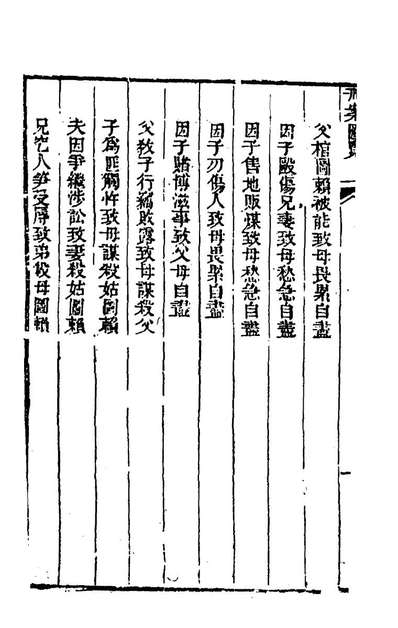 父棺圖賴被能致母畏累自盡
因子毆傷兄妻致母愁急自盡
因子售地販煤致母愁急自盡
因子刃傷人致母畏累自盡
因子賭博滋事致父母自盡
父教子行竊敗露致母謀殺父
子為匪觸忤致母謀殺姑圖賴
夫因爭繼涉訟致妻殺姑圖賴
兄挖人笋受辱致弟殺母圖賴